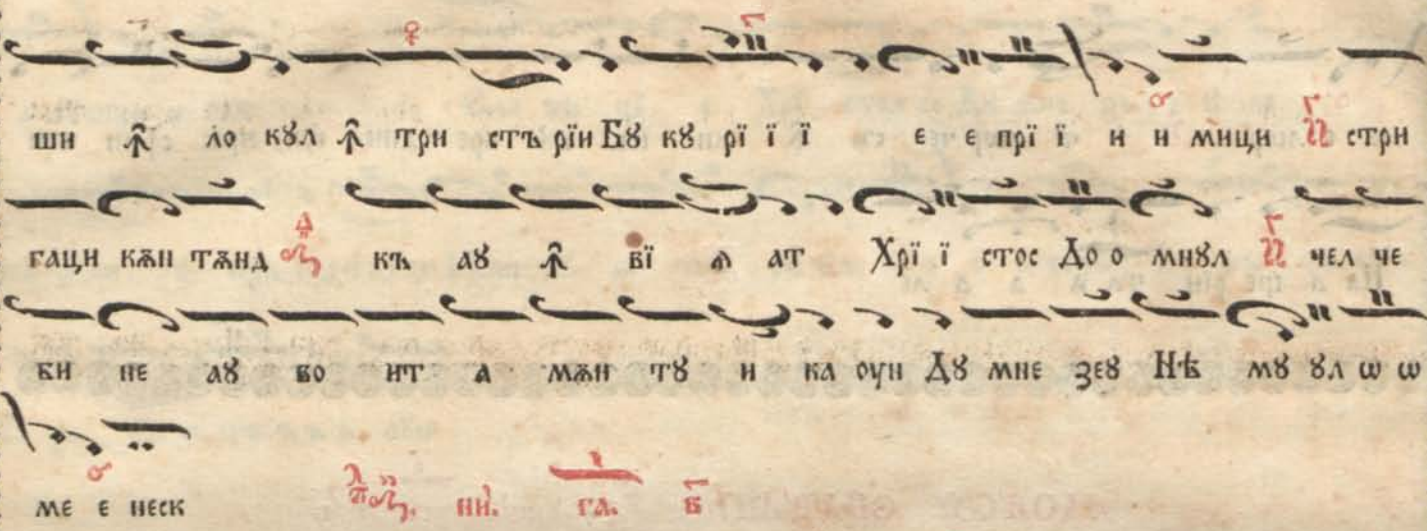 ши ꙟ ло кꙋл ꙟ три стъ рїи Бꙋ кꙋ рї ї ї е е прї ї и и мици стри
гаци кѫн тѫнд къ аꙋ ꙟ вї ѧ ат Хрї ї стос До о мнꙋл чел че
би не аꙋ во ит а мѫн тꙋ и ка оун Дꙋ мне зеꙋ Нѣ мꙋ ꙋл ѡ ѡ
ме е неск ни. га. в